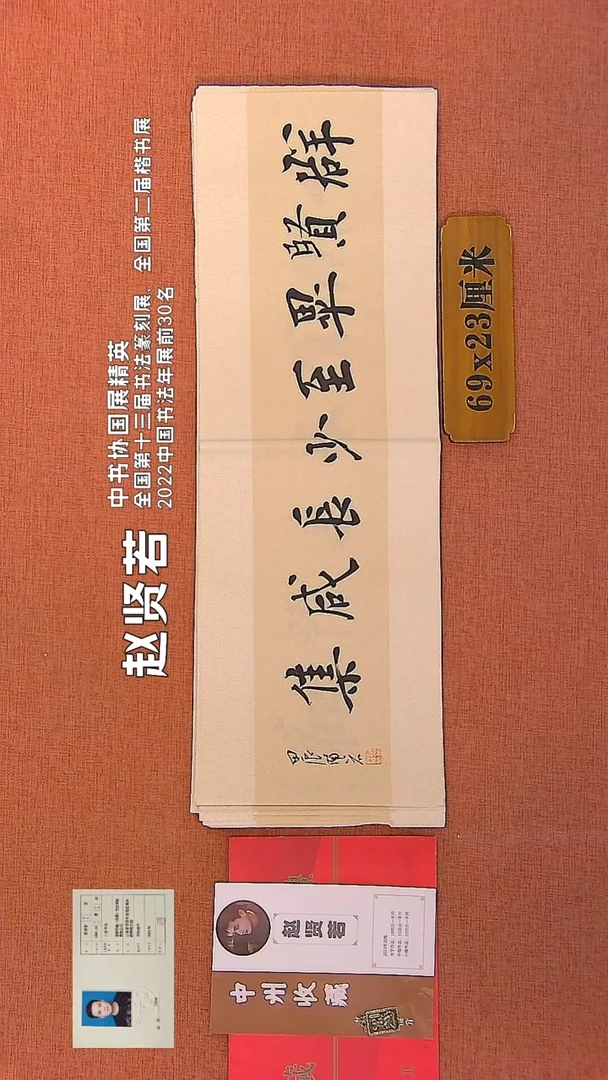 赵贤若
中书协国展精英
全国第十三届书法篆刻展、全国第二届楷书展
2022中国书法年展前30名
群賢畢至少長咸集
69x23厘米
赵贤若
中州收藏